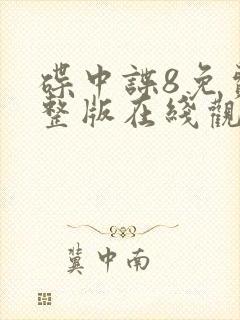 碟中諜8免費
整版在綫觀
冀中南